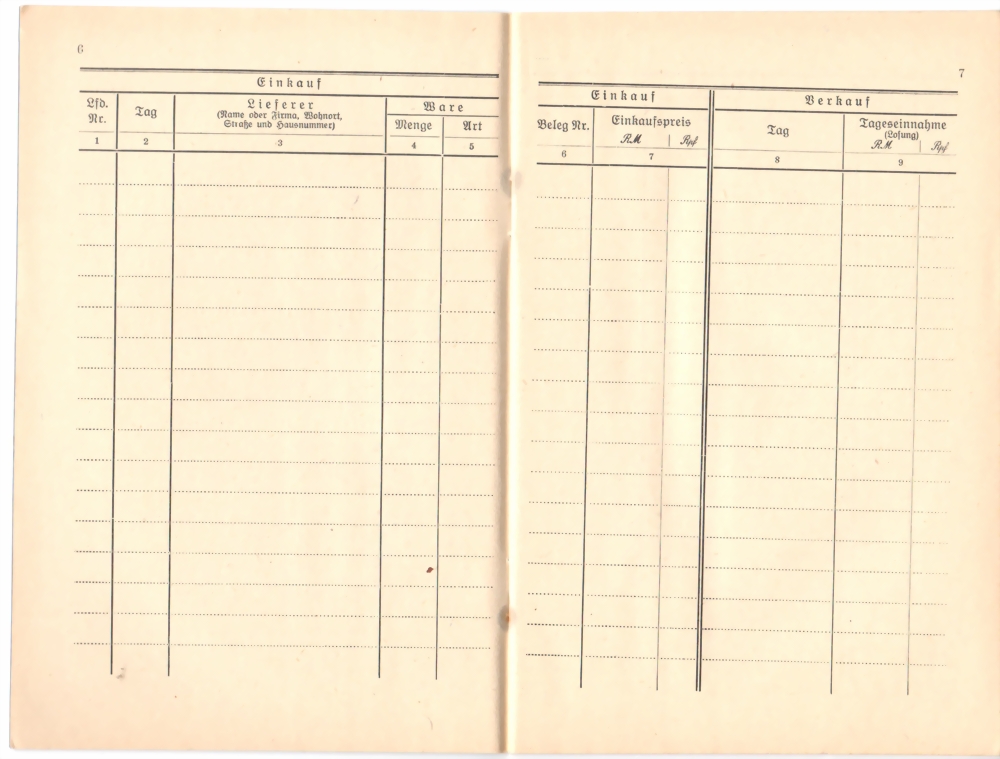 6
Einkauf
Lfd.
Nr.
Tag
Lieferer
(Name oder Firma, Wohnort,
Straße und Hausnummer)
Ware
Menge
Art
1 2 3 4 5
7
Einkauf
Verkauf
Beleg Nr.
Einkaufspreis
RM Rpf
Tag
Tageseinnahme
(Losung)
RM Rpf
6 7 8 9